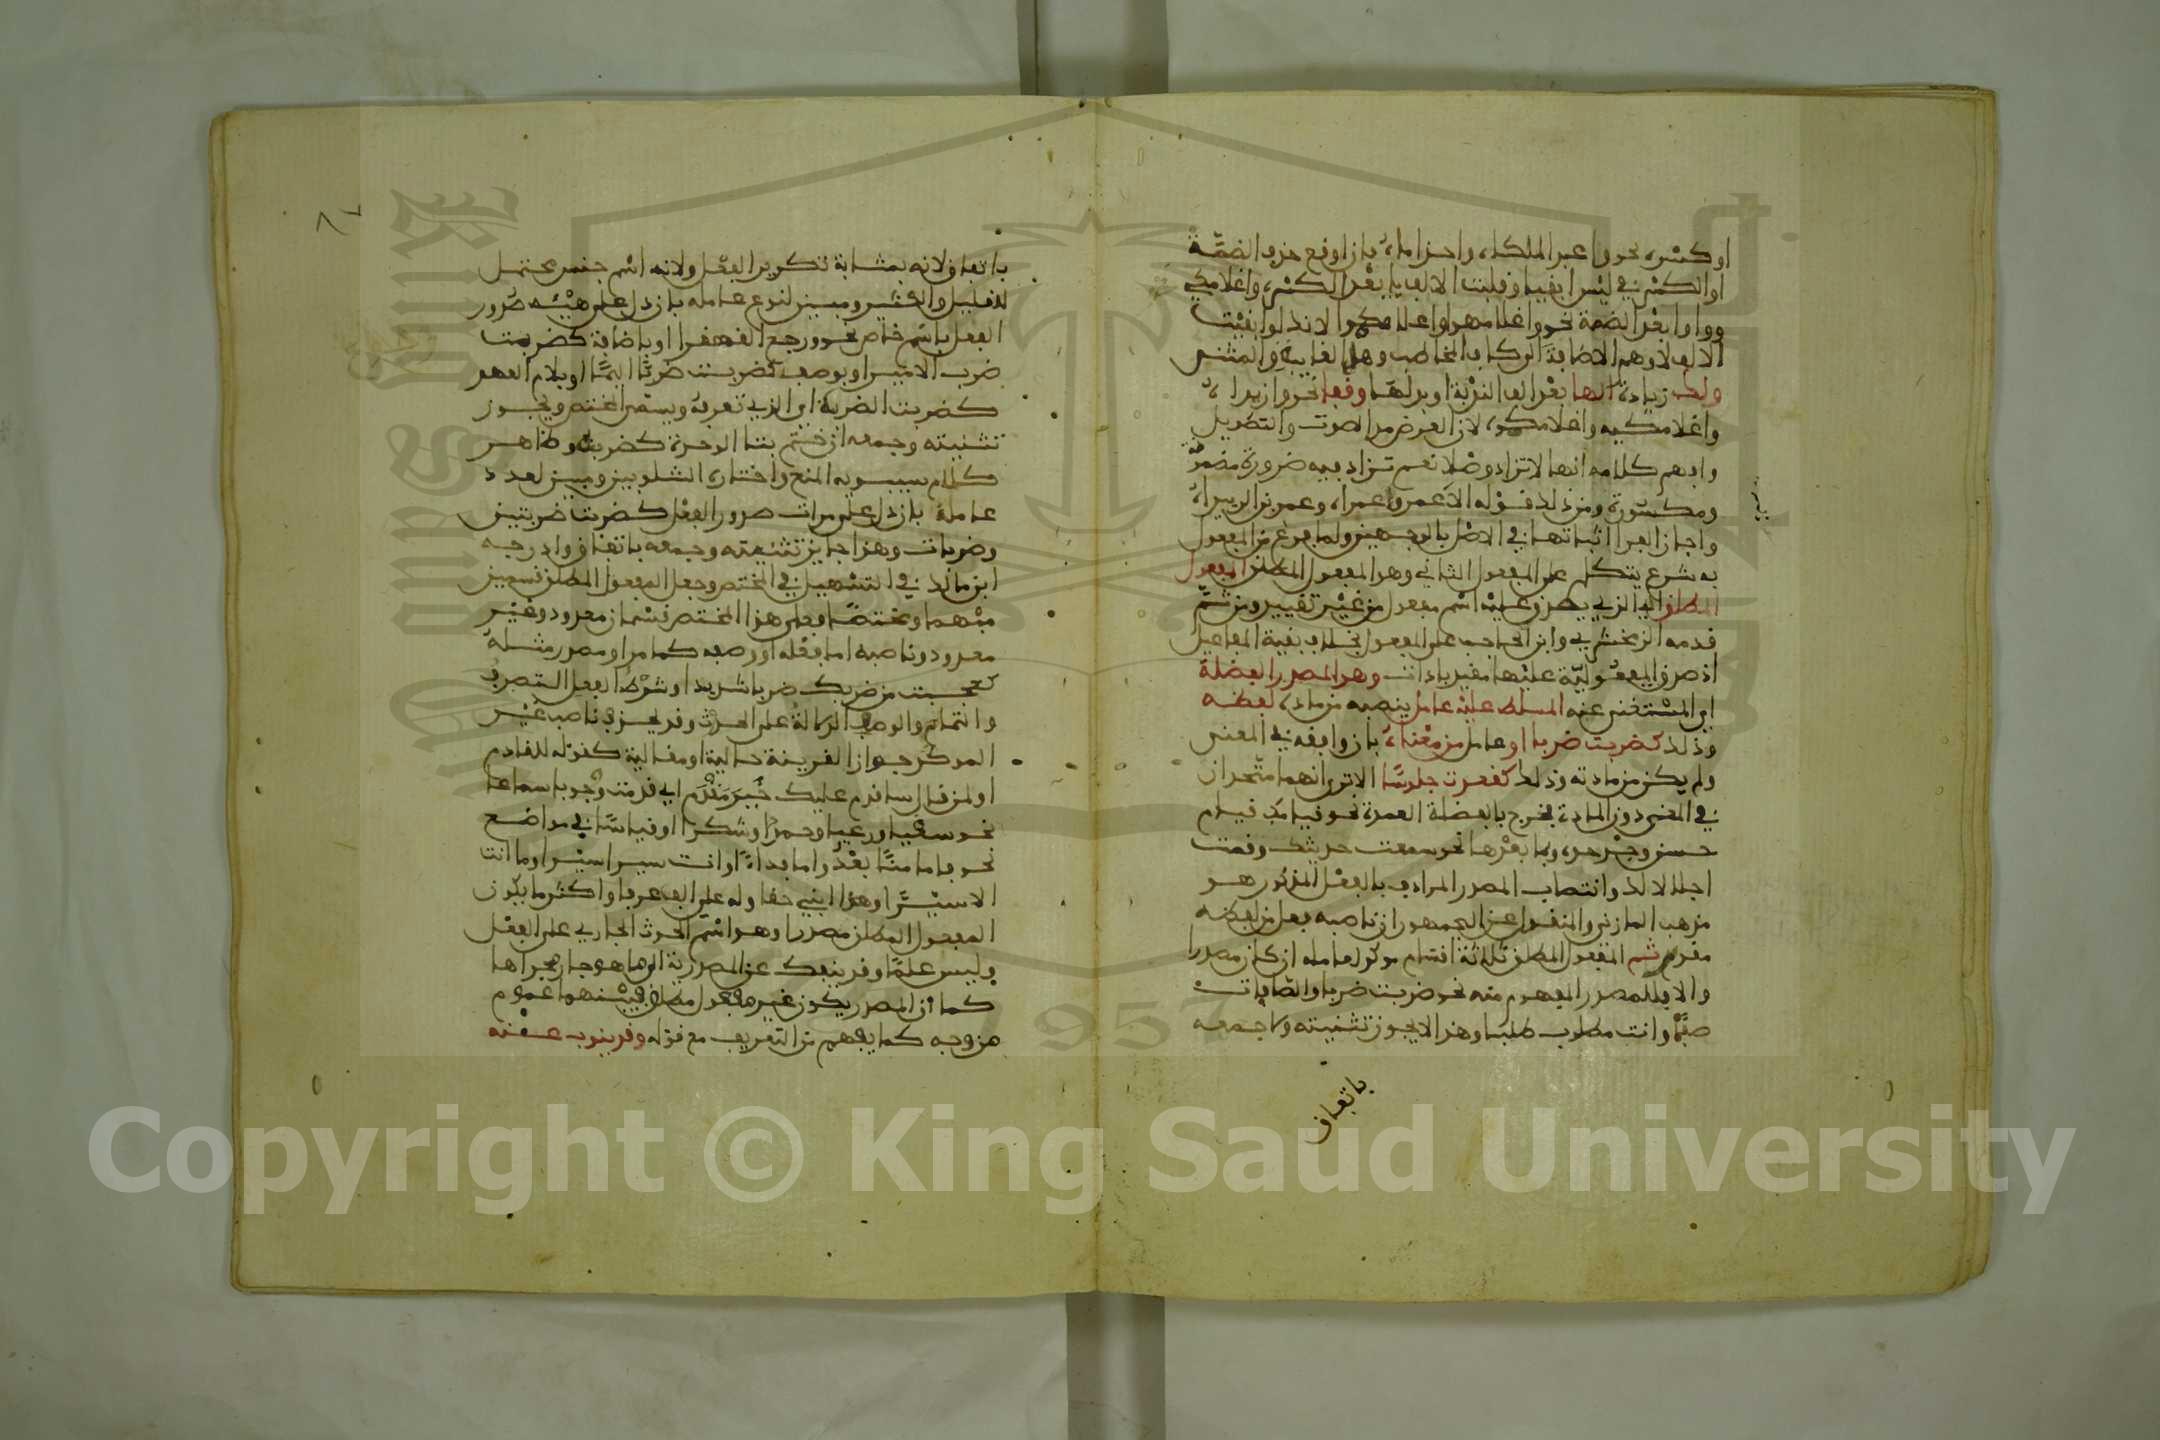 او كسر، نحو واعبد الملكاه، واحذاماه، فان اوقع حذف الضمة
او الكسر في لبس ابقيا وقلبت الالف ياء بعد الكسر، واغلامكي
وواوا بعد الضمة نحو واغلامهو واغلامكموا لانك لو ابقيت
الالف لاوهم الاضافة الى كاف المخاطب وهاء الغايبة والمثنى
ولك زيادة الهاء بعد الف الندبة او بدلها وقفا نحو وازيداه،
واغلامكيه واغلامكموه، لان الغرض مد الصوت والتطويل
وافهم كلامه انها لا تزاد وصلا نعم تزاد فيه ضرورة مضمومة
ومكسورة ومن ذلك قوله الا عمرو اعمراه، وعمرو بن الزبيراه،
واجاز الفرا اثباتها في الاصل بالوجهين ولما فرغ من المفعول
به شرع يتكلم على المفعول الثاني وهو المفعول المطلق المفعول
المطلق اي الذي يصدق عليه اسم مفعول من غير تقييد ومن ثم
قدمه الزمخشري وابن الحاجب على المفعول بخلاف بقية المفاعيل
اذ صدق المفعولية عليها مقيد بادات وهو المصدر الفضلة
اي المستغنى عنه المسلط عليه عامل ينصبه من مادة لفظه
وذلك كضربت ضربا او عامل من معناه، بان وافقه في المعنى
ولم يكن من مادته وذلك كقعدت جلوسا الا ترى انهما متحدان
في المعنى دون المادة فخرج بالفضلة العمدة نحو قيامك قيام
حسن وجد جده، وبما بعدها نحو سمعت حديثك وقمت
اجلالا لك وانتصاب المصدر المرادف بالفعل المذكور هو
مذهب المازني والمنقول عن الجمهور ان ناصبه فعل من لفظه
مقدم ثم المفعول المطلق ثلاثة اقسام موكد لعامله ان كان مصدرا
والا فللمصدر المفهوم منه نحو ضربت ضربا والصافات
صفا وانت مطلوب طلبا وهذا لا يجوز تثنيته ولا جمعه
باتفاق
باتفاق لانه بمثابة تكرير الفعل ولانه اسم جنس يحتمل
للقليل والكثير ومبين لنوع عامله بان دل على هيئة صدور
الفعل باسم خاص نحو رجع القهقرا او باضافة كضربت
ضرب الامير او بوصف كضربت ضربا اليما او بلام العهد
كضربت الضرب اي الذي تعرفه ويسمى المختص ويجوز
تثنيته وجمعه ان ختم بتا الوحدة كضربة وظاهر
كلام سيبويه المنع واختاره الشلوبين ومبين لعدد
عامله بان دل على مرات صدور الفعل كضربت ضربتين
وضربات وهذا جايز تثنيته وجمعه باتفاق وادرجه
ابن مالك في التسهيل في المختص وجعل المفعول المطلق قسمين
مبهما ومختصا فعلى هذا المختص قسمان معدود وغير
معدود وناصبه اما فعله او وصفه كما مر او مصدر مثله
كعجبت من ضربك ضربا شديدا وشرط الفعل التصرف
والتمام والوصف الدلالة على الحدث وقد يحذف ناصب غير
الموكد جوازا لقرينة حالية او مقالية كقوله للقادم
او لمن قال ساقدم عليك خير مقدم اي قدمت وجوبا سماعا
نحو سقيا ورعيا وحمدا وشكرا او قياسا في مواضع
نحو فاما منا بعد واما فداء او انت سيرا سيرا وما انت
الا سيرا وهذا ابني حقا وله علي الف عرفا واكثر ما يكون
المفعول المطلق مصدرا وهو اسم الحدث الجاري على الفعل
وليس علما وقد ينفك عن المصدرية الى ما هو جار مجراها
كما ان المصدر يكون غير مفعول مطلق فبينهما عموم
من وجه كما يفهم من التعريف مع قوله وقد ينوب عنه